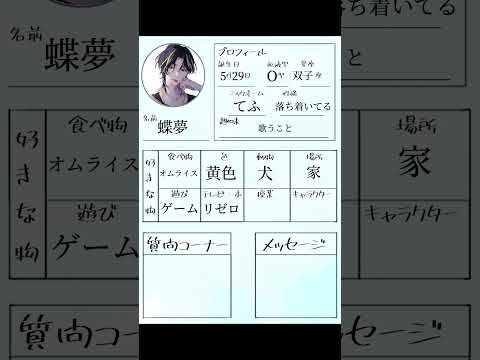 プロフィール
誕生日 血液型 星座
5月29日 O型 双子座
ニックネーム 性格
てふ 落ち着いてる
趣味
歌うこと
名前
蝶夢
好きな物
食べ物 色 動物 場所
オムライス 黄色 犬 家
遊び テレビ 授業 キャラクター
ゲーム リゼロ
質問コーナー
メッセージ
名前
蝶夢
落ち着いてる
歌うこと
好きな物
食べ物
オムライス
遊び
ゲーム
場所
家
キャラクター
質問コーナー
メッセージ